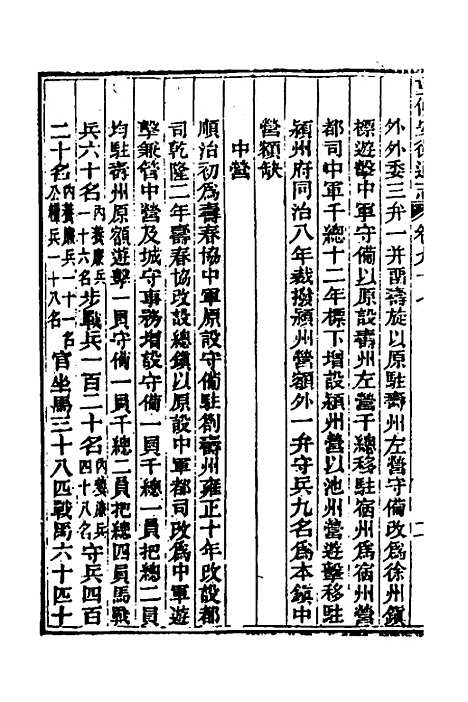 外外委三弁一并留壽旋以原駐壽州左營守備改爲徐州鎮
標遊擊中軍守備以原設壽州左營千總移駐宿州爲宿州營
都司中軍千總十二年標下增設潁州營以池州營遊擊移駐
潁州府同治八年裁撥潁州營額外一弁守兵九名爲本鎮中
營額缺
中營
順治初爲壽春協中軍原設守備駐劄壽州雍正十年改設都
司乾隆二年壽春協改設總鎮以原設中軍都司改爲中軍遊
擊兼管中營及城守事務增設守備一員千總一員把總二員
均駐壽州原額遊擊一員守備一員千總二員把總四員馬戰
兵六十名內養廉兵一十六名步戰兵一百二十名內養廉兵四十八名守兵四百
二十名內養廉兵一十一名公糧兵一十八名官坐馬三十八匹戰馬六十四匹十